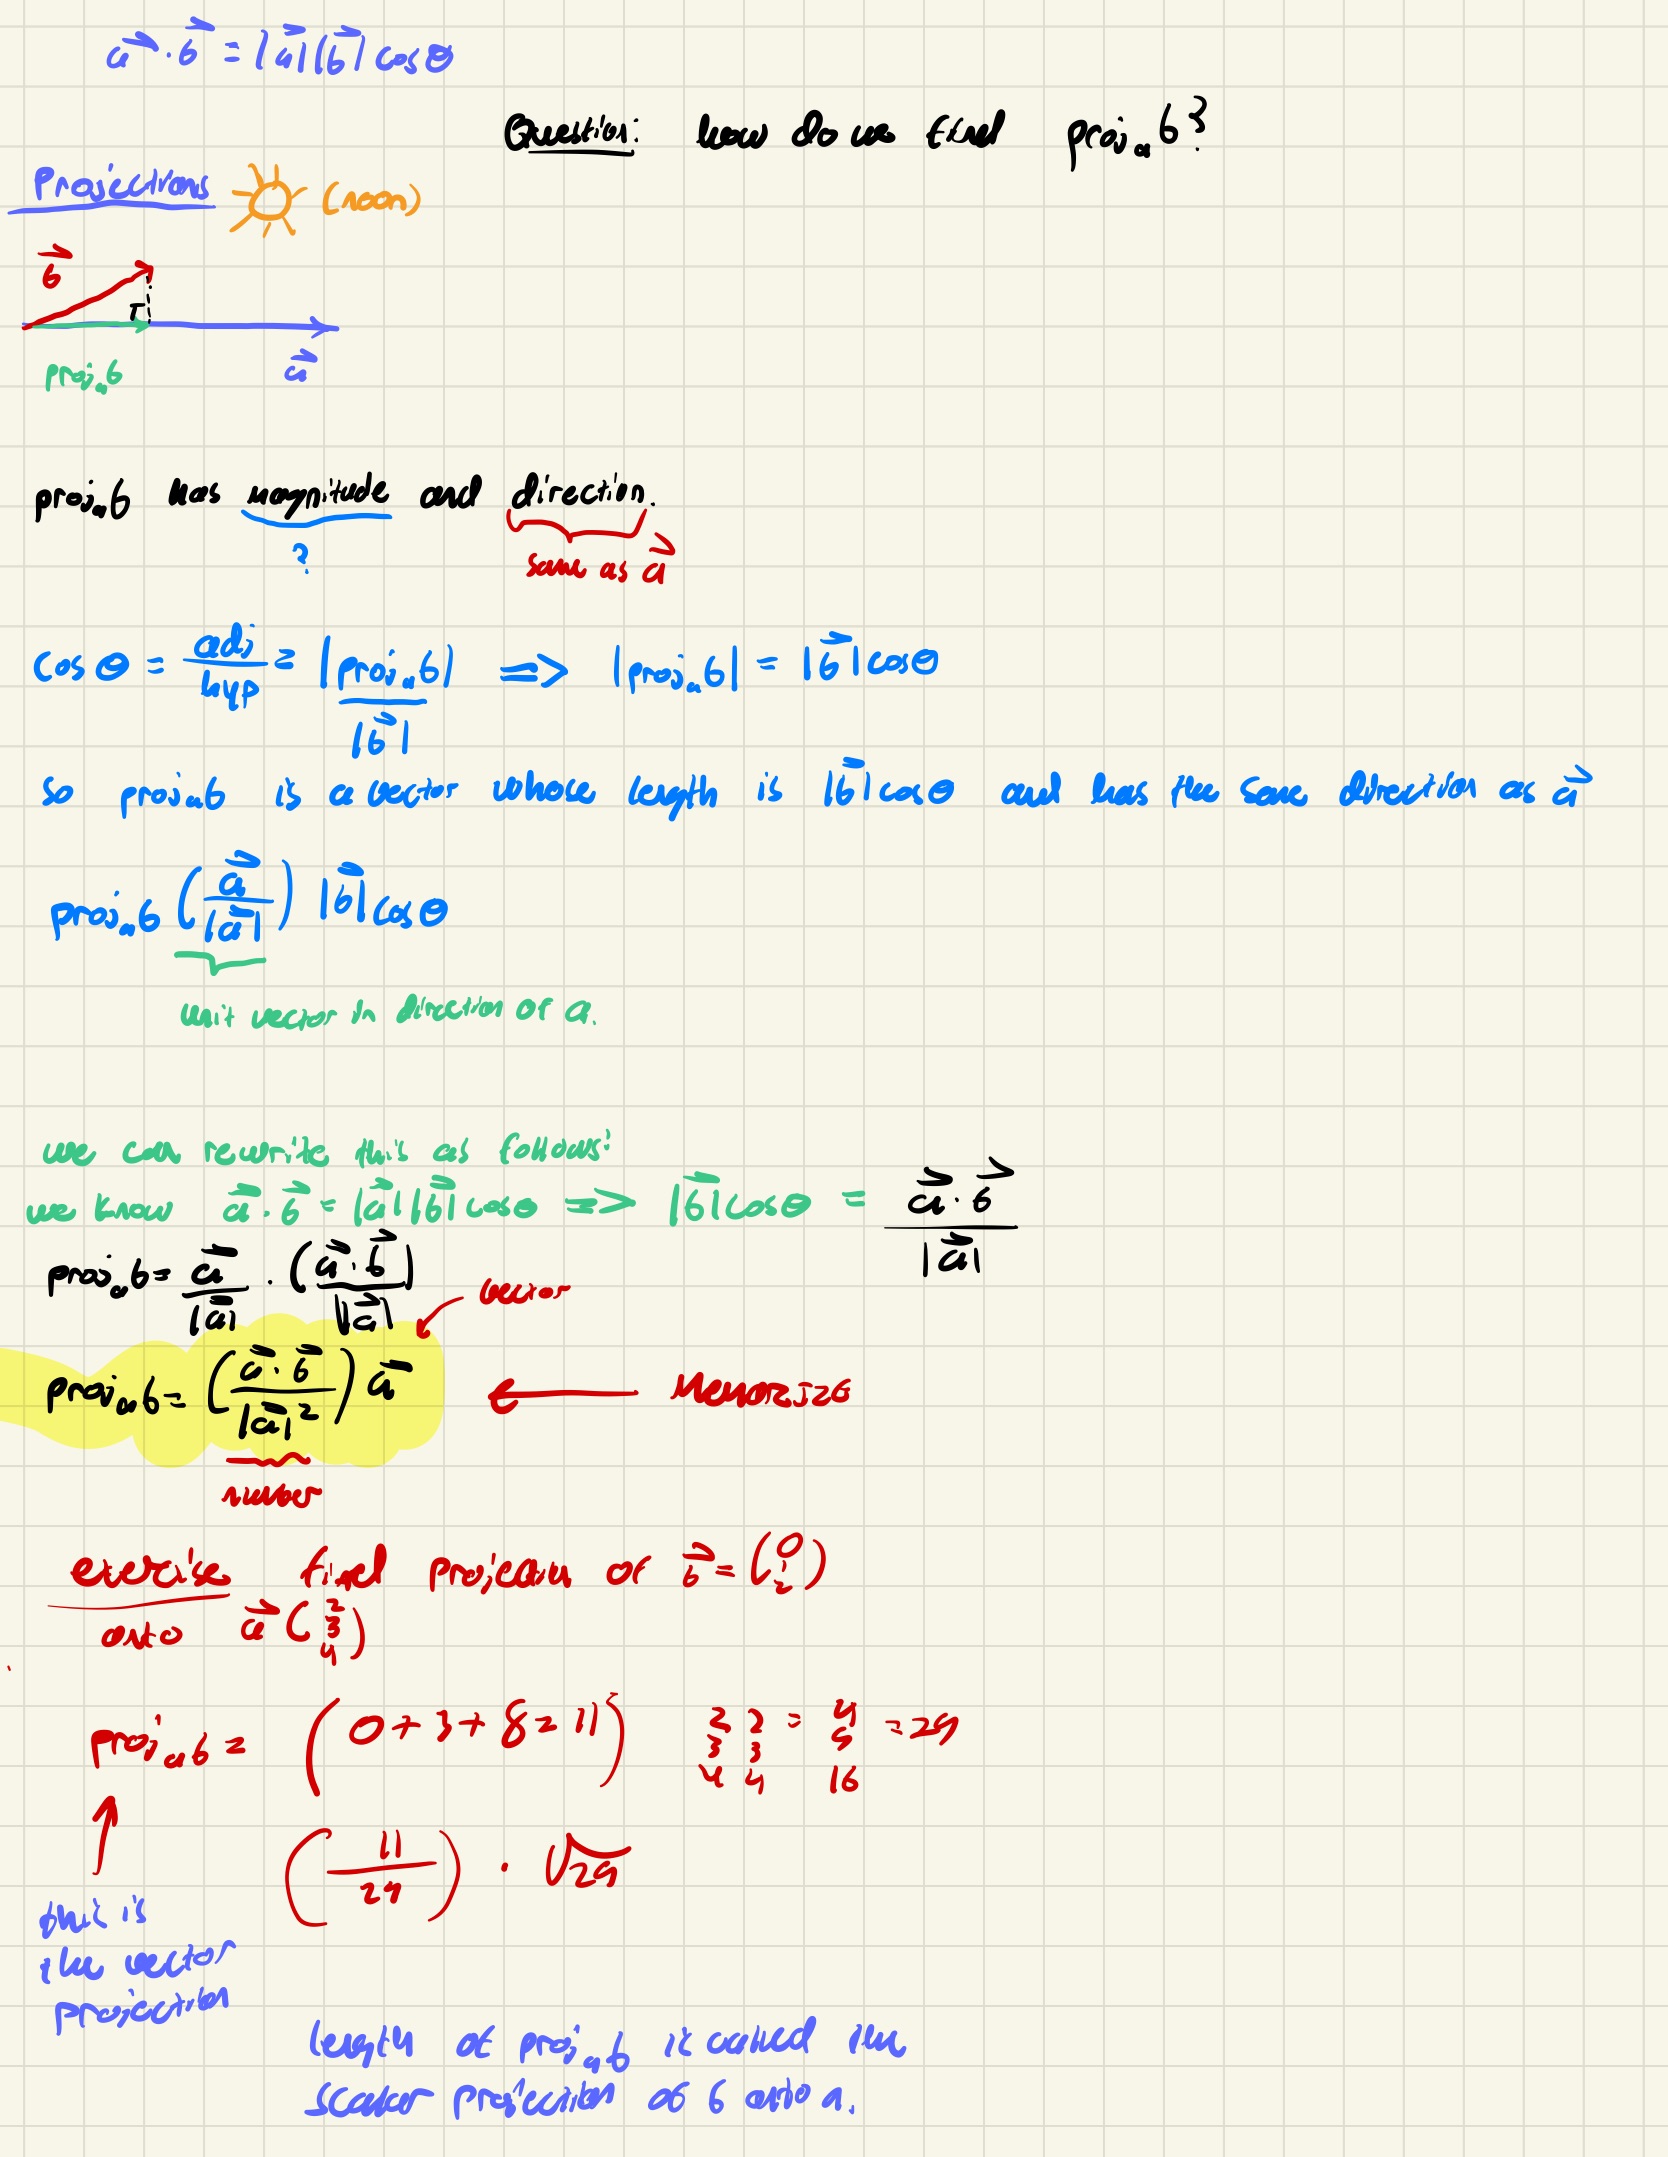 a⃗ · b⃗ = |a⃗||b⃗| cosθ
Question: how do we find projₐb?
Projections (noon)
b⃗
projₐb a⃗
projₐb has magnitude and direction.
? same as a⃗
cosθ = adj/hyp = |projₐb|/|b⃗| => |projₐb| = |b⃗|cosθ
so projₐb is a vector whose length is |b⃗|cosθ and has the same direction as a⃗
projₐb (a⃗/|a⃗|) |b⃗|cosθ
unit vector in direction of a.
we can rewrite this as follows:
we know a⃗ · b⃗ = |a⃗||b⃗| cosθ => |b⃗|cosθ = a⃗ · b⃗/|a⃗|
projₐb = a⃗/|a⃗| · (a⃗ · b⃗/|a⃗|)
vector
projₐb = (a⃗ · b⃗/|a⃗|²) a⃗ ← MEMORIZE
number
exercise find projection of b⃗ = (0 1 2)
onto a⃗ (2 3 4)
projₐb = (0 + 3 + 8 = 11) 2 3 4 2 3 4 = 4 9 16 = 29
(11/29) · √29
this is
the vector
projection
length of projₐb is called the
scalar projection of b onto a.